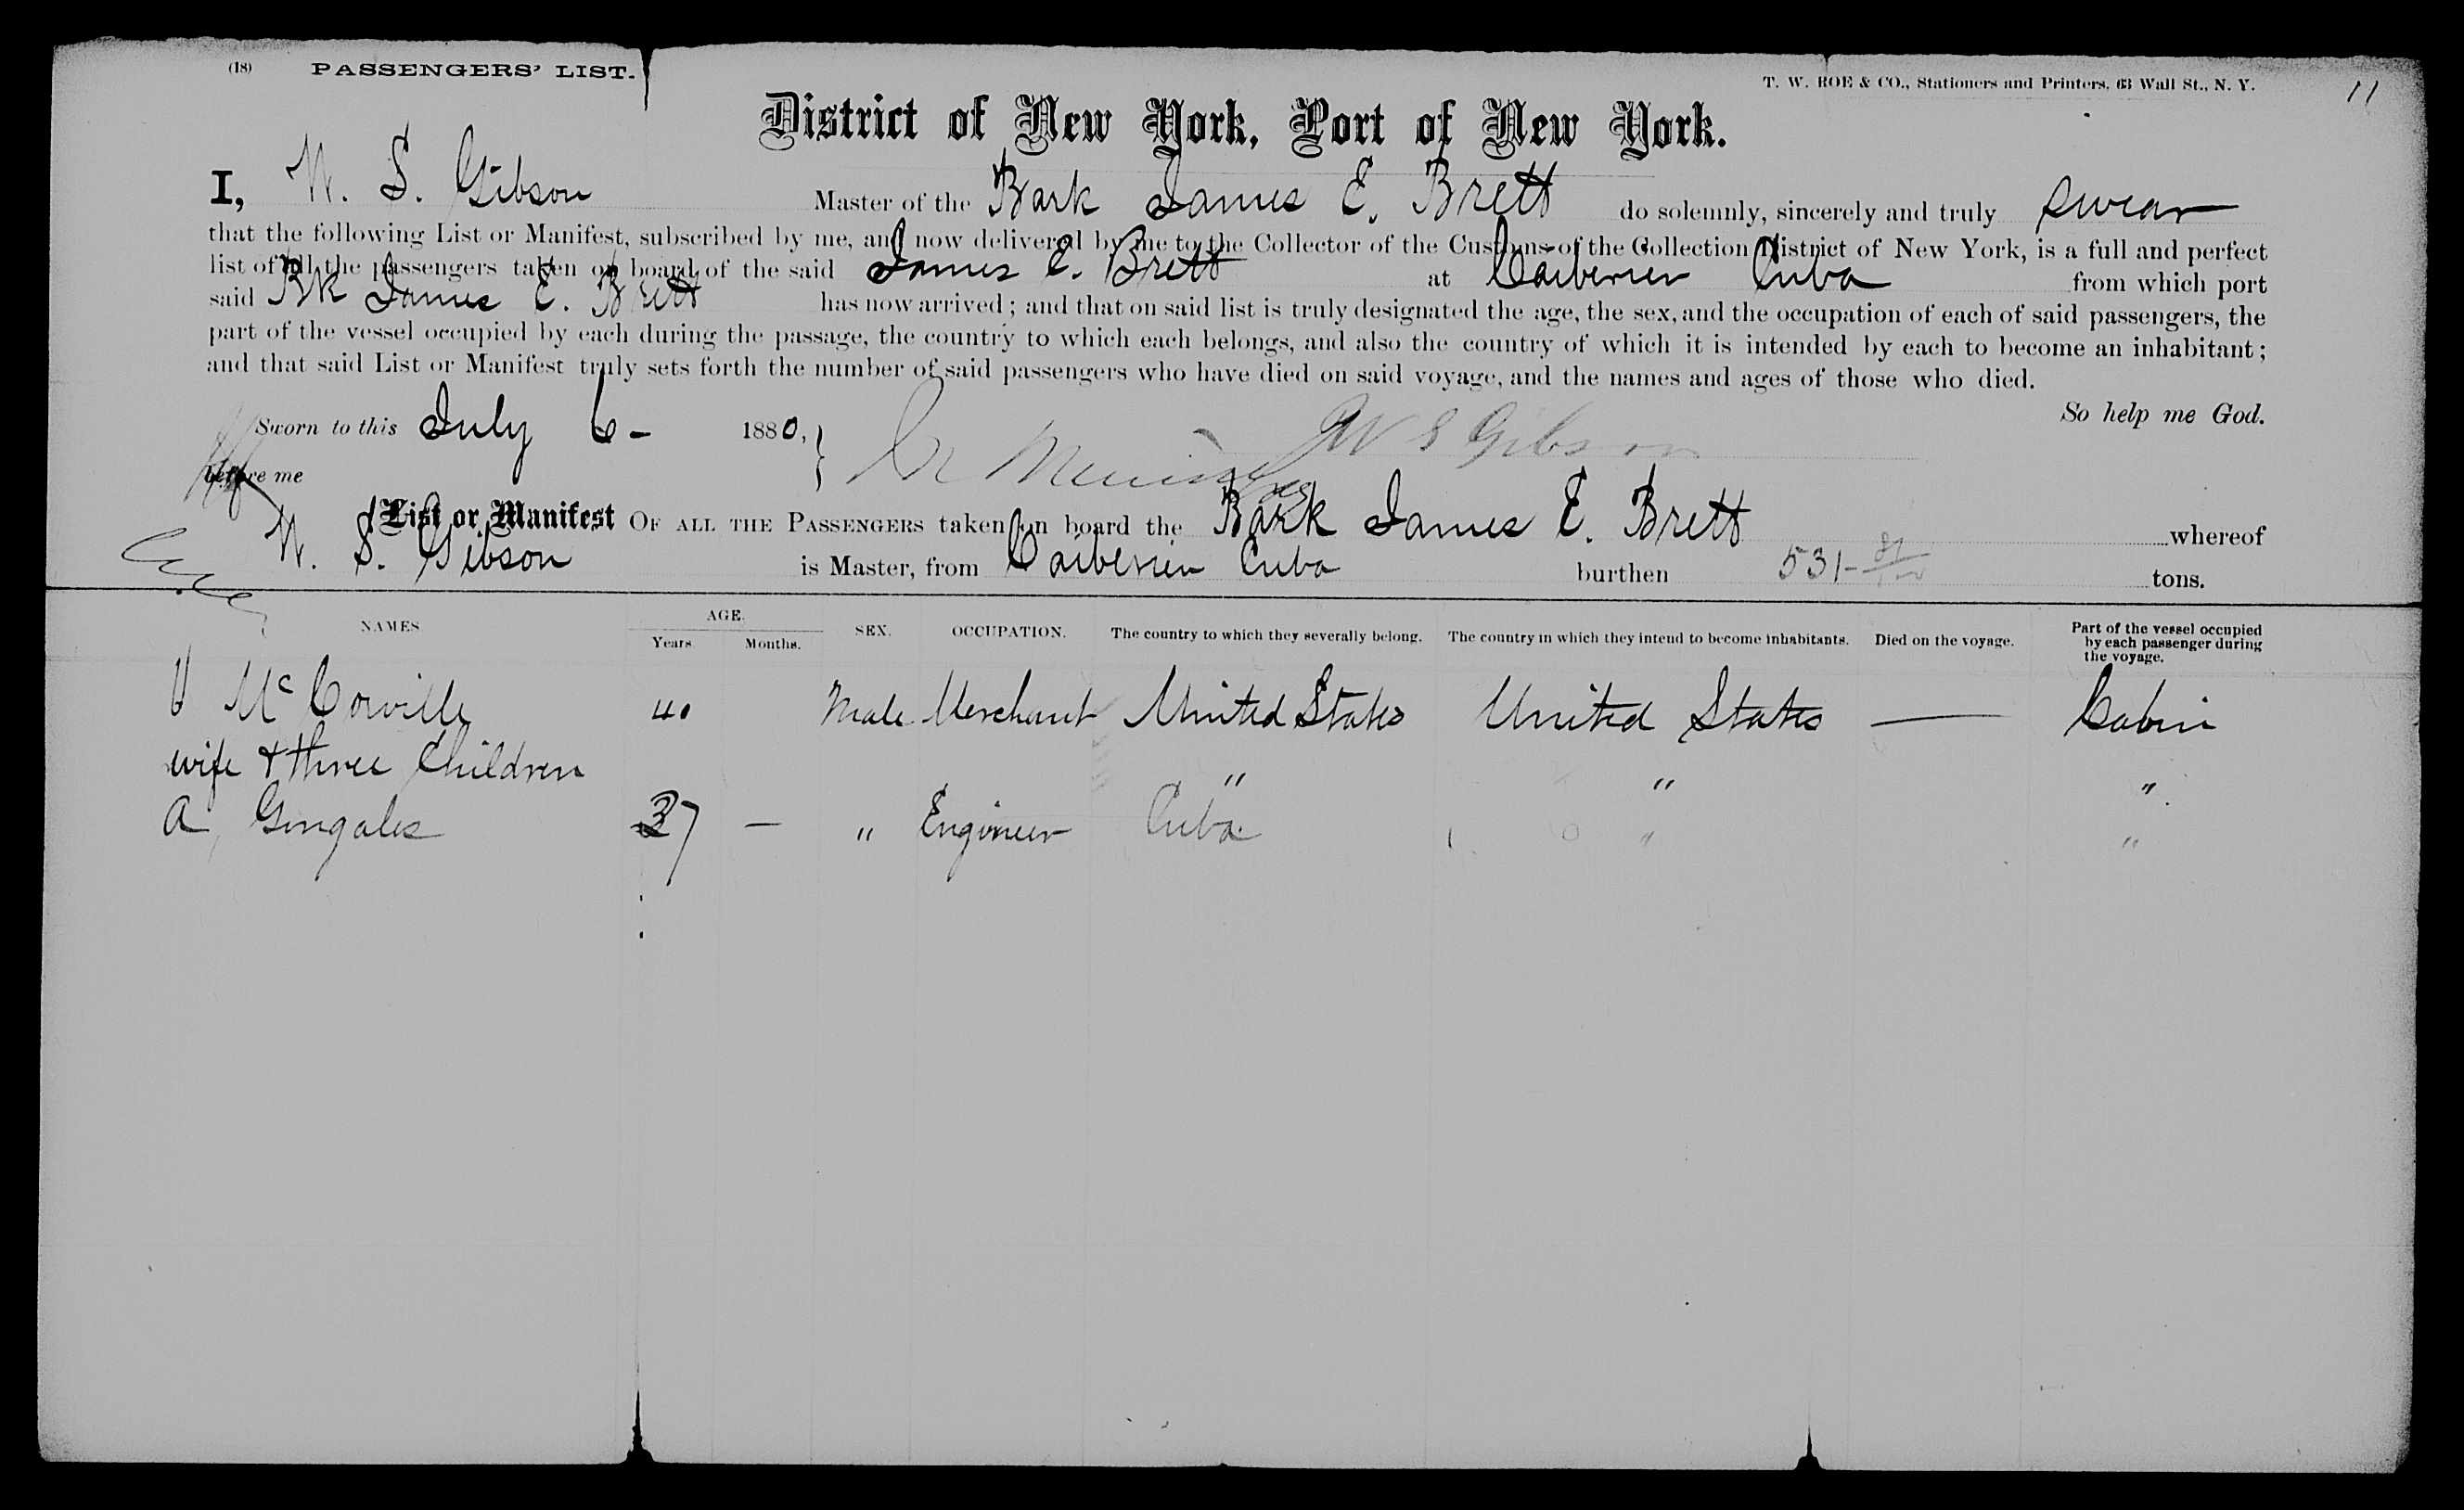 (18) PASSENGERS' LIST.
T. W. ROE & CO., Stationers and Printers, 63 Wall St., N. Y.
11
District of New York, Port of New York.
I, W. S. Gibson Master of the Bark James E. Brett do solemnly, sincerely and truly swear
that the following List or Manifest, subscribed by me, and now delivered by me to the Collector of the Customs of the Collection District of New York, is a full and perfect
list of all the passengers taken on board of the said James E. Brett at Caibarien Cuba from which port
said Bk James E. Brett has now arrived; and that on said list is truly designated the age, the sex, and the occupation of each of said passengers, the
part of the vessel occupied by each during the passage, the country to which each belongs, and also the country of which it is intended by each to become an inhabitant;
and that said List or Manifest truly sets forth the number of said passengers who have died on said voyage, and the names and ages of those who died.
So help me God.
Sworn to this July 6- 1880, W S Gibson
before me
List or Manifest OF ALL THE PASSENGERS taken on board the Bark James E. Brett whereof
W. S. Gibson is Master, from Caibarien Cuba burthen 531- tons.
NAMES AGE. Years. Months. SEX. OCCUPATION. The country to which they severally belong. The country in which they intend to become inhabitants. Died on the voyage. Part of the vessel occupied by each passenger during the voyage.
Mc Corville 40 Male Merchant United States United States — Cabin
wife & three Children " " "
A, Gongales 37 — " Engineer Cuba " "